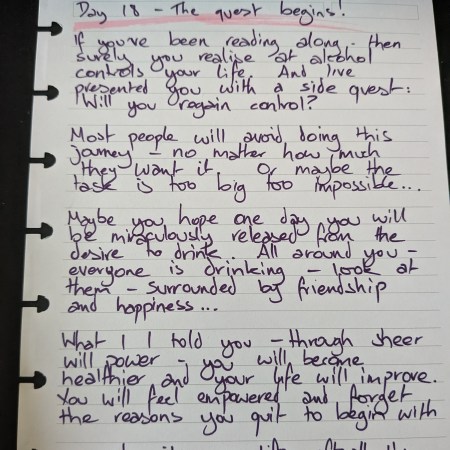 Day 18 - The quest begins!
If you've been reading along - then
surely you realise at alcohol
controls your life. And I've
presented you with a side quest:
Will you regain control?
Most people will avoid doing this
journey - no matter how much
they want it. Or maybe the
task is too big too impossible...
Maybe you hope one day you will
be miraculously released from the
desire to drink. All around you -
everyone is drinking - look at
them - surrounded by friendship
and happiness...
What I I told you - through sheer
will power - you will become
healthier and your life will improve.
You will feel empowered and forget
the reasons you quit to begin with